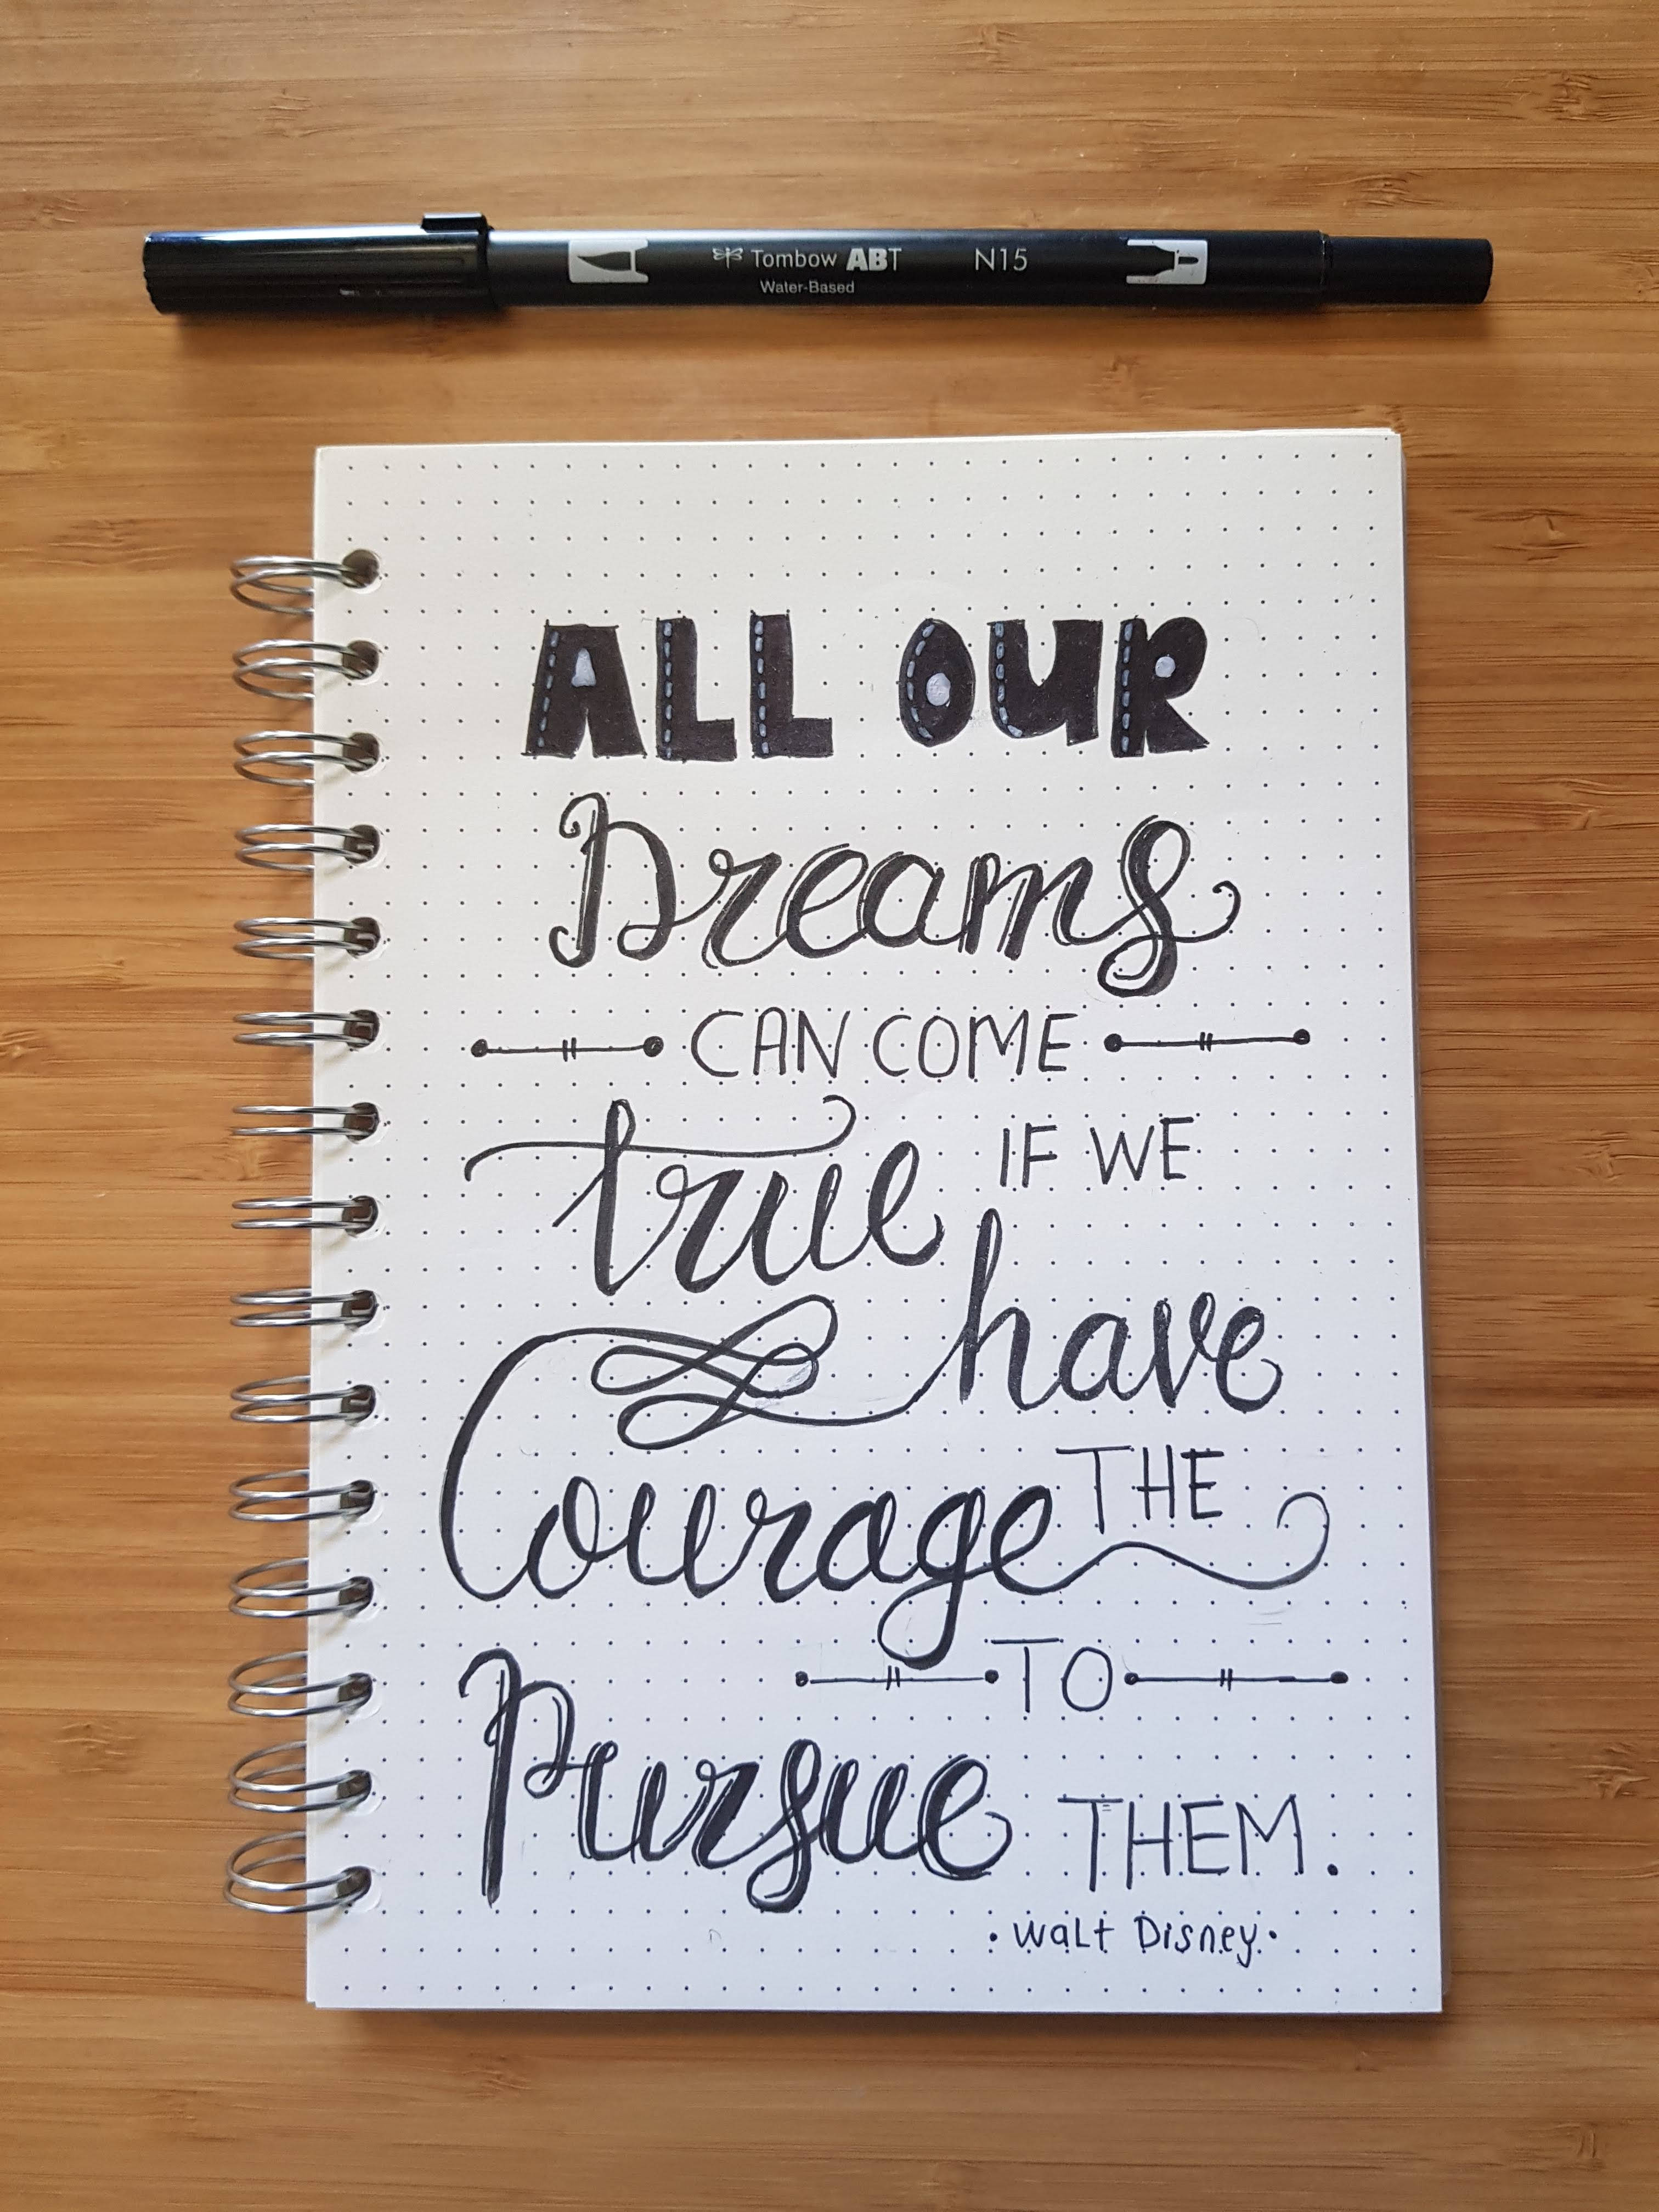 Tombow ABT N15
Water-Based
ALL OUR
Dreams
CAN COME
true IF WE
have
Courage THE
TO
Pursue THEM.
• Walt Disney •